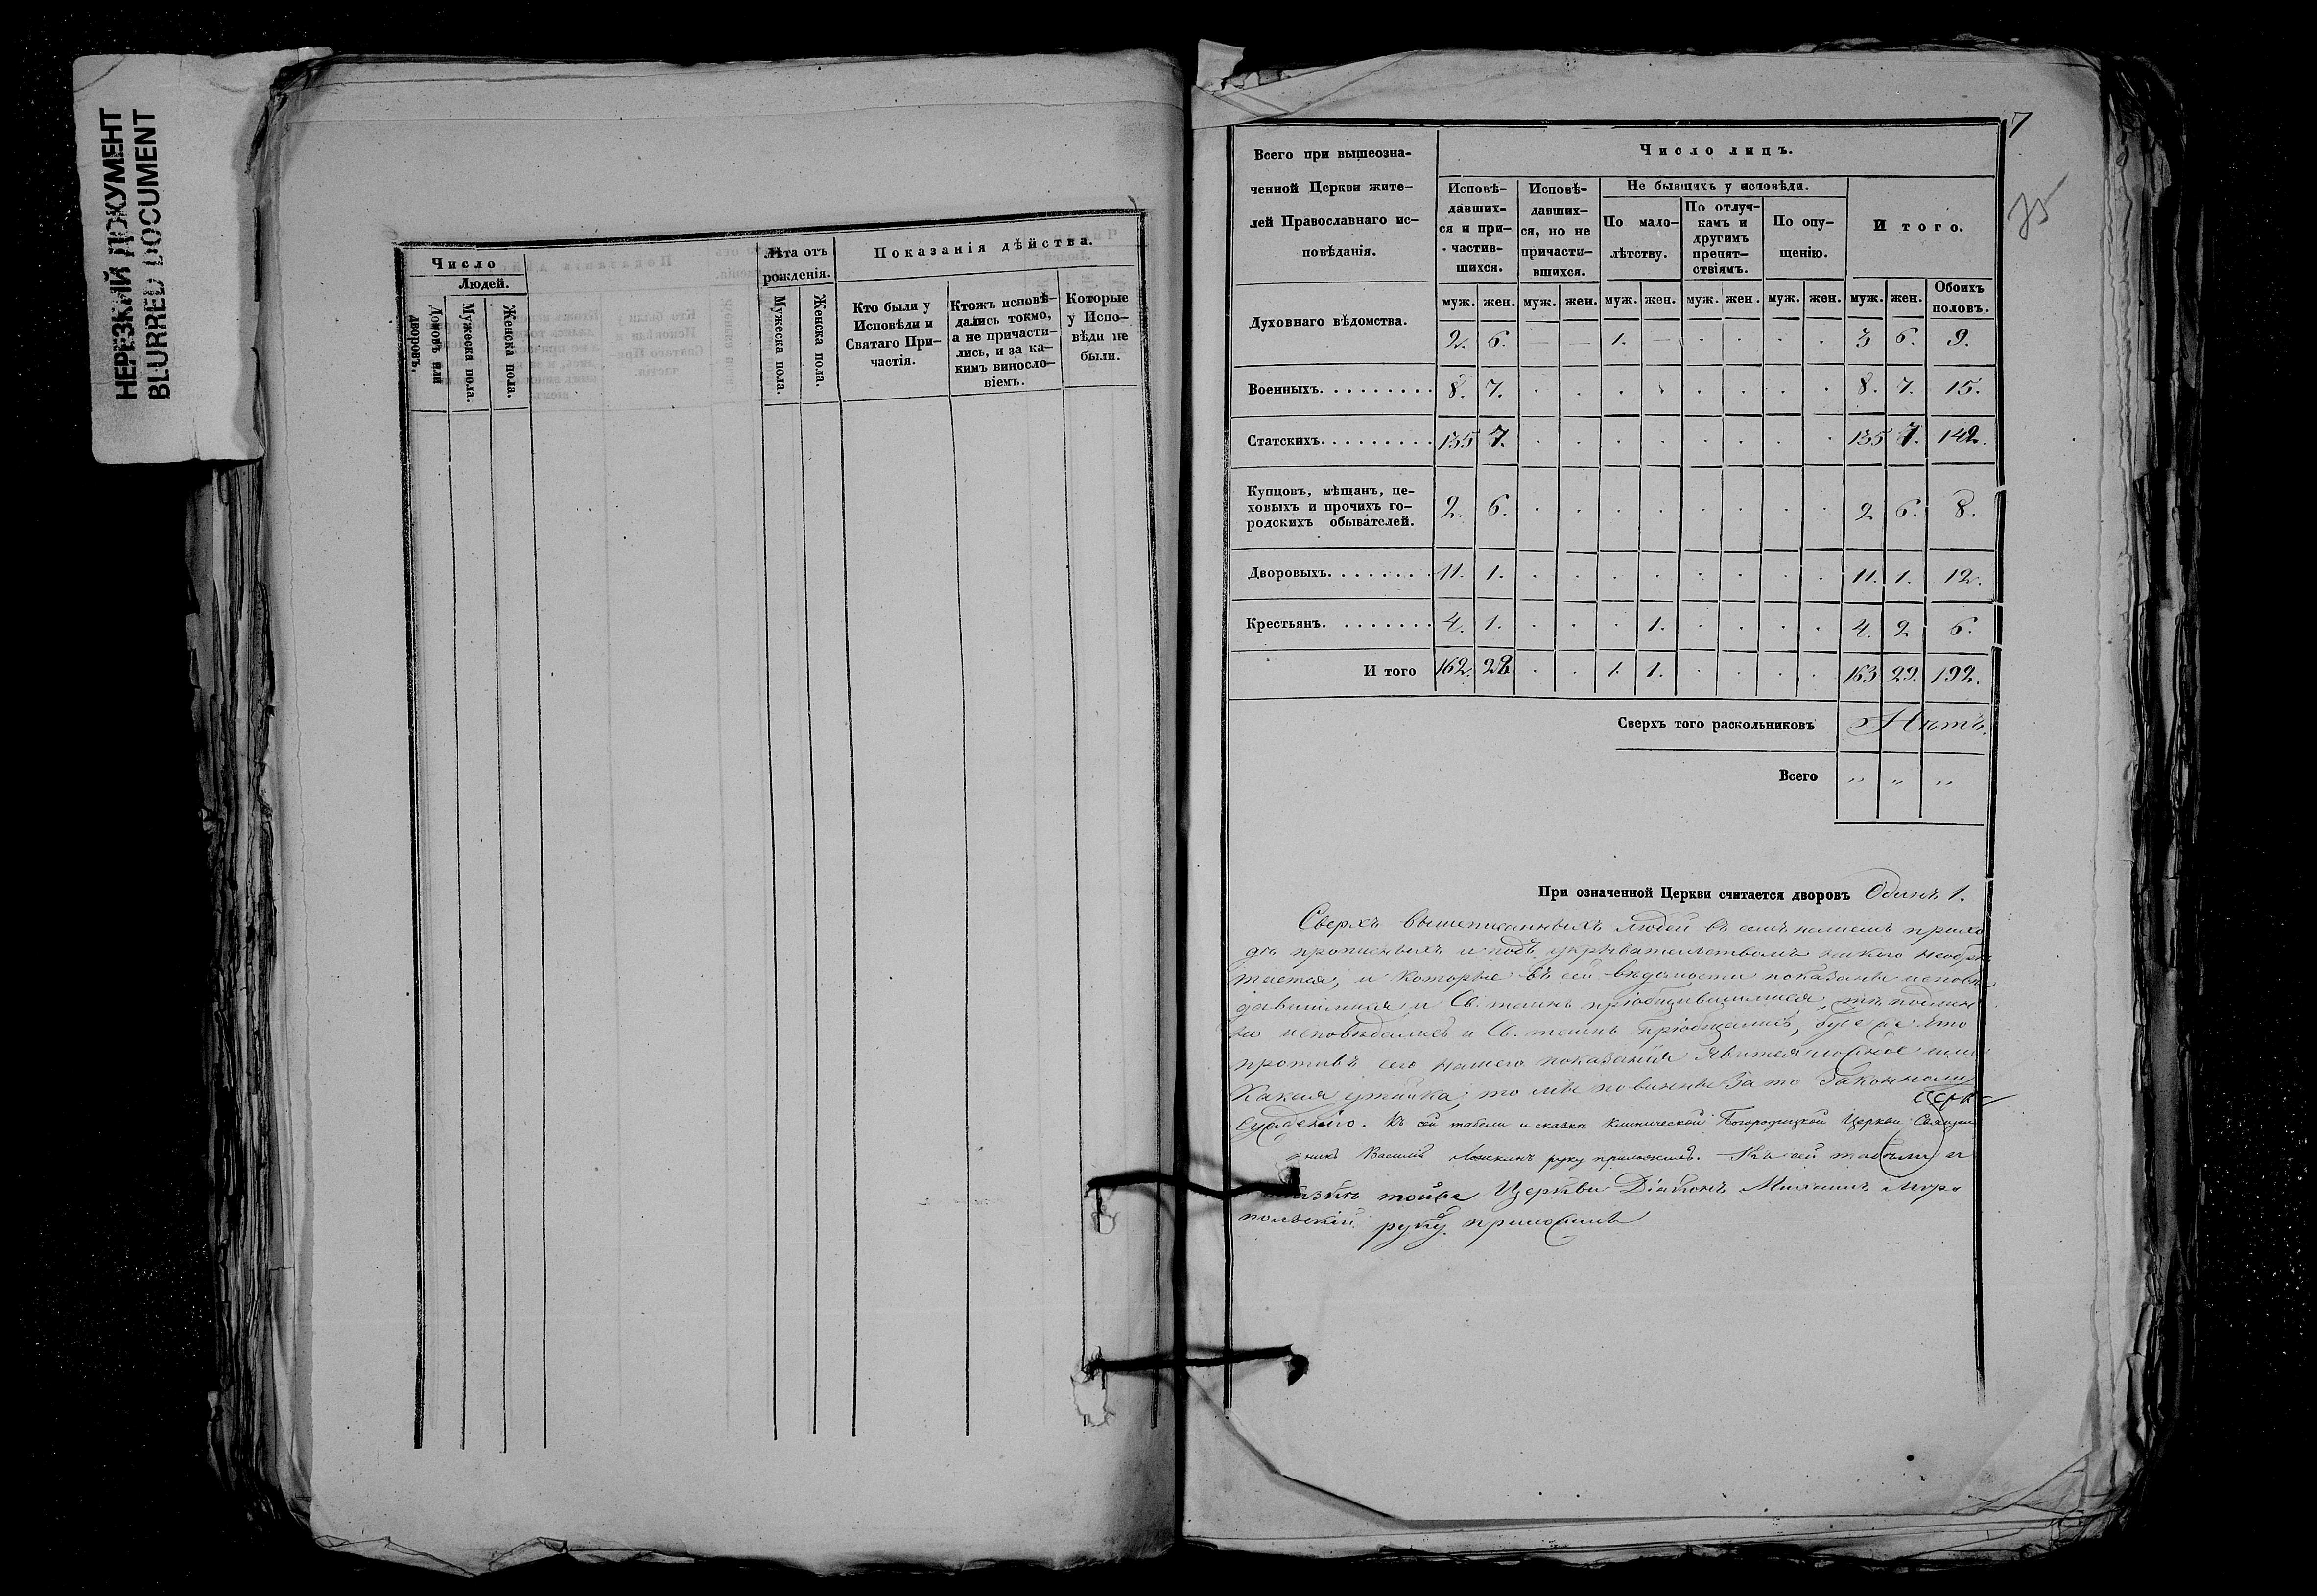 НЕРЕЗКИЙ ДОКУМЕНТ
BLURRED DOCUMENT
Число
Людей.
Домовъ или дворовъ.
Мужеска пола.
Женска пола.
Лѣта отъ рожденія.
Мужеска пола.
Женска пола.
Показанія дѣйства.
Кто были у Исповѣди и Святаго При-
частія.
Ктожъ исповѣ-
дались токмо,
а не причасти-
лись, и за ка-
кимъ винносло-
віемъ.
Которые
у Испо-
вѣди не
были.
7
75
Всего при вышеозна-
ченной Церкви жите-
лей Православнаго ис-
повѣданія.
Число лицъ.
Исповѣ-
давших-
ся и при-
частив-
шихся.
Исповѣ-
давших-
ся, но не
причасти-
вшихся.
Не бывшихъ у исповѣди.
По мало-
лѣтству.
По отлуч-
камъ и
другимъ
препят-
ствіямъ.
По опу-
щенію.
Итого.
муж. жен. муж. жен. муж. жен. муж. жен. муж. жен. муж. жен. Обоихъ половъ.
Духовнаго вѣдомства. 2. 6. — — 1. — . . . . 3 6. 9.
Военныхъ. 8. 7. . . . . . . . . 8. 7. 15.
Статскихъ. 135 7. . . . . . . . . 135 7. 142.
Купцовъ, мѣщанъ, це-
ховыхъ и прочихъ го-
родскихъ обывателей. 2. 6. . . . . . . . . 2 6. 8.
Дворовыхъ. 11. 1. . . . . . . . . 11. 1. 12.
Крестьянъ. 4. 1. . . . 1. . . . . 4. 2 6.
И того 162. 28 . . 1. 1. . . . . 163 29. 192.
Сверхъ того раскольниковъ Нѣтъ.
Всего „ „ „
При означенной Церкви считается дворовъ Одинъ 1.
Сверхъ вышеписанныхъ людей въ семъ нашемъ прихо
дѣ прописныхъ и подъ укрывательствомъ никого необрѣ
тается, и которые въ сей вѣдомости показаны исповѣ
давшимися и Св. таинъ пріобщившимися, тѣ подлин
но исповѣдались и Св. таинъ пріобщались, буде же что
противъ сего нашего показания явится ложное или
какая утайка, то мы повинны за то законному
суждению. Къ сей табели и сказкѣ Клинической Богородицкой Церкви Священ
никъ Василій руку приложилъ. Къ сей табели и
сказкѣ тойже Церкви Діаконъ Михаилъ
польскій руку приложилъ